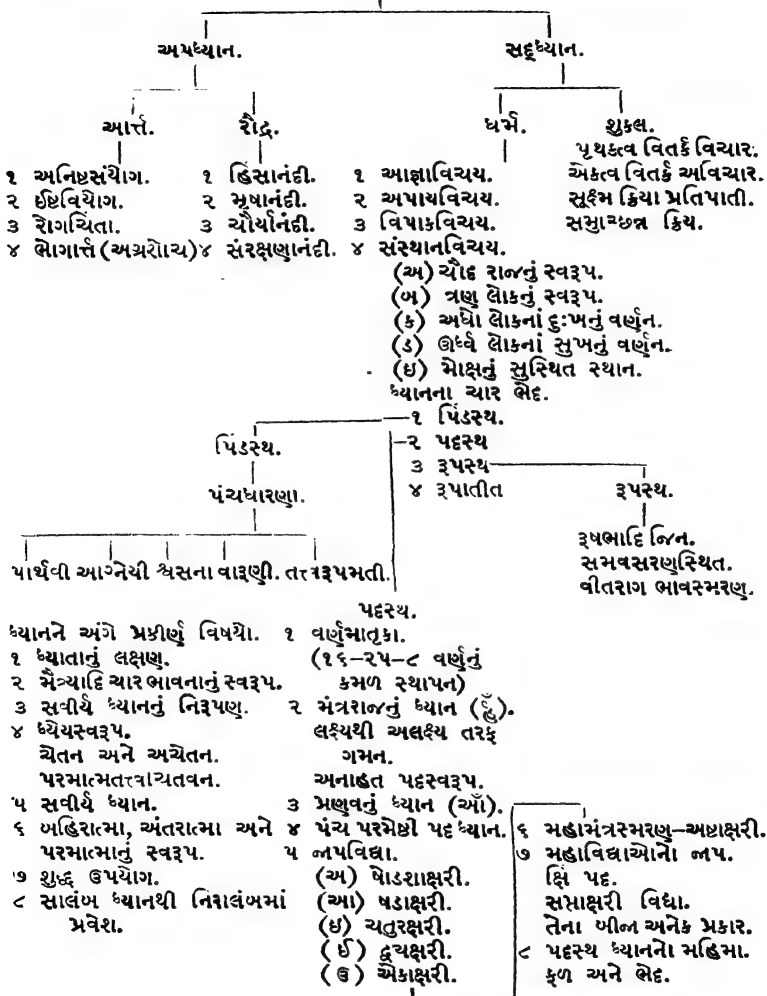 અપધ્યાન.
સદ્ધ્યાન.
આર્ત્ત.
રૌદ્ર.
ધર્મ.
શુકલ.
૧ અનિષ્ટસંયોગ.
૨ ઈષ્ટવિયોગ.
૩ રોગચિંતા.
૪ ભોગાર્ત્ત (અગ્રશોચ)
૧ હિંસાનંદી.
૨ મૃષાનંદી.
૩ ચૌર્યાનંદી.
૪ સંરક્ષણાનંદી.
૧ આજ્ઞાવિચય.
૨ અપાયવિચય.
૩ વિપાકવિચય.
૪ સંસ્થાનવિચય.
(અ) ચૌદ રાજનું સ્વરૂપ.
(બ) ત્રણ લોકનું સ્વરૂપ.
(ક) અધો લોકનાં દુઃખનું વર્ણન.
(ડ) ઊર્ધ્વ લોકનાં સુખનું વર્ણન.
(ઇ) મોક્ષનું સુસ્થિત સ્થાન.
પૃથકત્વ વિતર્ક વિચાર.
એકત્વ વિતર્ક અવિચાર.
સૂક્ષ્મ ક્રિયા પ્રતિપાતી.
સમુચ્છન્ન ક્રિય.
ધ્યાનના ચાર ભેદ.
૧ પિંડસ્થ.
૨ પદસ્થ
૩ રૂપસ્થ
૪ રૂપાતીત
પિંડસ્થ.
પંચધારણા.
પાર્થવી આગ્નેયી શ્વસના વારૂણી. તત્ત્વરૂપમતી.
રૂપસ્થ.
રૂષભાદિ જિન.
સમવસરણસ્થિત.
વીતરાગ ભાવસ્મરણ.
ધ્યાનને અંગે પ્રકીર્ણ વિષયો.
૧ ધ્યાતાનું લક્ષણ.
૨ મૈત્ર્યાદિ ચાર ભાવનાનું સ્વરૂપ.
૩ સવીર્ય ધ્યાનનું નિરૂપણ.
૪ ધ્યેયસ્વરૂપ.
ચેતન અને અચેતન.
૫ સવીર્ય ધ્યાન.
૬ બહિરાત્મા, અંતરાત્મા અને
પરમાત્માનું સ્વરૂપ.
૭ શુદ્ધ ઉપયોગ.
૮ સાલંબ ધ્યાનથી નિરાલંબમાં
પ્રવેશ.
પદસ્થ.
૧ વર્ણમાતૃકા.
(૧૬–૨૫–૮ વર્ણનું
કમળ સ્થાપન)
૨ મંત્રરાજનું ધ્યાન
લક્ષ્યથી અલક્ષ્ય તરફ
ગમન.
અનાહત પદસ્વરૂપ.
૩ પ્રણવનું ધ્યાન (ઑં).
૪ પંચ પરમેષ્ઠી પદ ધ્યાન.
૫ જાપવિદ્યા.
(અ) ષોડશાક્ષરી.
(આ) ષડાક્ષરી.
(ઇ) ચતુરક્ષરી.
(ઈ) દ્વયક્ષરી.
(ઉ) એકાક્ષરી.
૬ મહામંત્રસ્મરણ–અષ્ટાક્ષરી.
૭ મહાવિદ્યાઓનો જાપ.
ક્ષિં પદ.
સપ્તાક્ષરી વિદ્યા.
તેના બીજા અનેક પ્રકાર.
૮ પદસ્થ ધ્યાનનો મહિમા.
ફળ અને ભેદ.